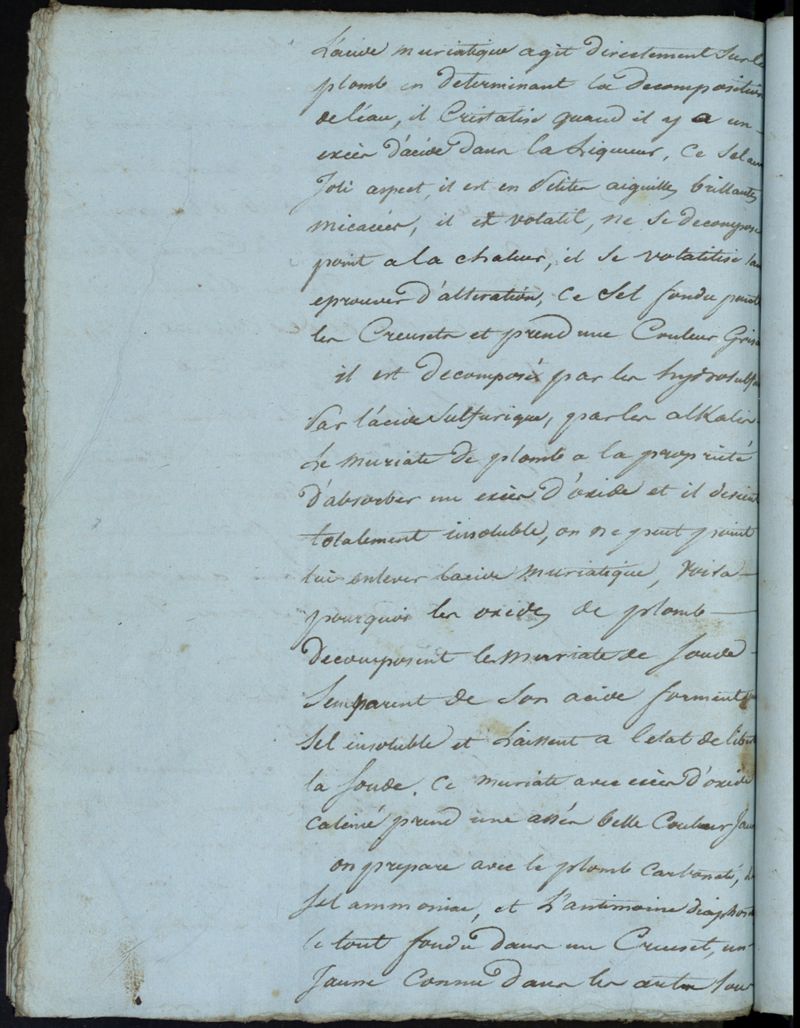 L'acide muriatique agit directement sur le
plomb en determinant la decomposition
de l'eau, il Cristalise quand il y a un
excès d'acide dans la liqueur, Ce Sel a un
Joli aspect, il est en petites aiguilles brillantes
micacées, il est volatil, ne se decompose
point a la chaleur, il se volatilise sans
eprouver d'altération, Ce Sel fondu
les Creusets et prend une Couleur Grise
il est decomposé par les hydrosulf
Par l'acide Sulfurique, par les alkalis
Le muriate de plomb a la proprieté
D'absorber un excès d'oxide et il devient
totalement insoluble, on ne peut point
lui enlever l'acide muriatique, voila
pourquoi les oxides de plomb
Decomposent le muriate de soude
S'emparent de Son acide forment un
Sel insoluble et Laissent a l'etat de liberté
la soude. Ce muriate avec excès d'oxide
calciné prend une assés belle Couleur Jau
on prepare avec le plomb Carbonaté, le
Sel ammoniac, et L'antimoine diaphor
le tout fondu dans un Creuset, un
Jaune Connu dans les arts Sous